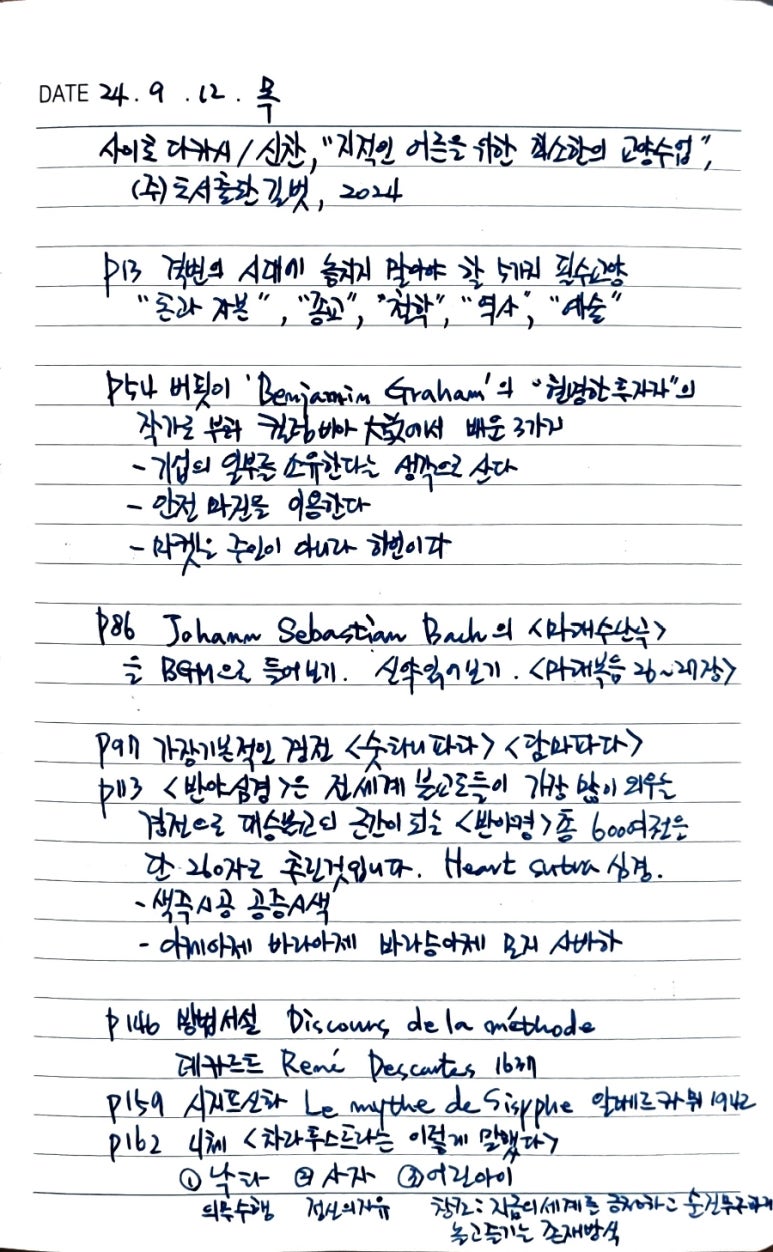 DATE 24. 9. 12. 목
사이토 다카시 / 신찬, "지적인 어른을 위한 최소한의 교양수업",
(주)도서출판 길벗, 2024
p13 격변의 시대에 놓치지 말아야 할 5가지 필수교양
"돈과 자본", "종교", "철학", "역사", "예술"
p54 버핏이 'Benjamin Graham'의 "현명한 투자자"의
작가로 부터 컬럼비아 大學에서 배운 3가지
- 기업의 일부를 소유한다는 생각으로 산다
- 안전 마진을 이용한다
- 마켓은 주인이 아니라 하인이다
p86 Johann Sebastian Bach의 <마태수난곡>
을 BGM으로 들어보기. 신약읽어보기. <마태복음 26~27장>
p97 가장기본적인 경전 <숫타니파타> <담마파다>
p113 <반야심경>은 전세계 불교도들이 가장 많이 외우는
경전으로 대승불교의 근간이 되는 <반야경> 총 600여권은
단 260자로 추린것입니다. Heart sutra 심경.
- 색즉시공 공즉시색
- 아제아제 바라아제 바라승아제 모지 사바하
p146 방법서설 Discours de la méthode
데카르트 René Descartes 1637
p159 시지프신화 Le mythe de Sisyphe 알베르 카뮈 1942
p162 니체 <차라투스트라는 이렇게 말했다>
① 낙타 ② 사자 ③ 어린아이
의무수행 정신의자유 창조: 지금의세계를 긍정하고 순진무구하게
놀고즐기는 존재방식